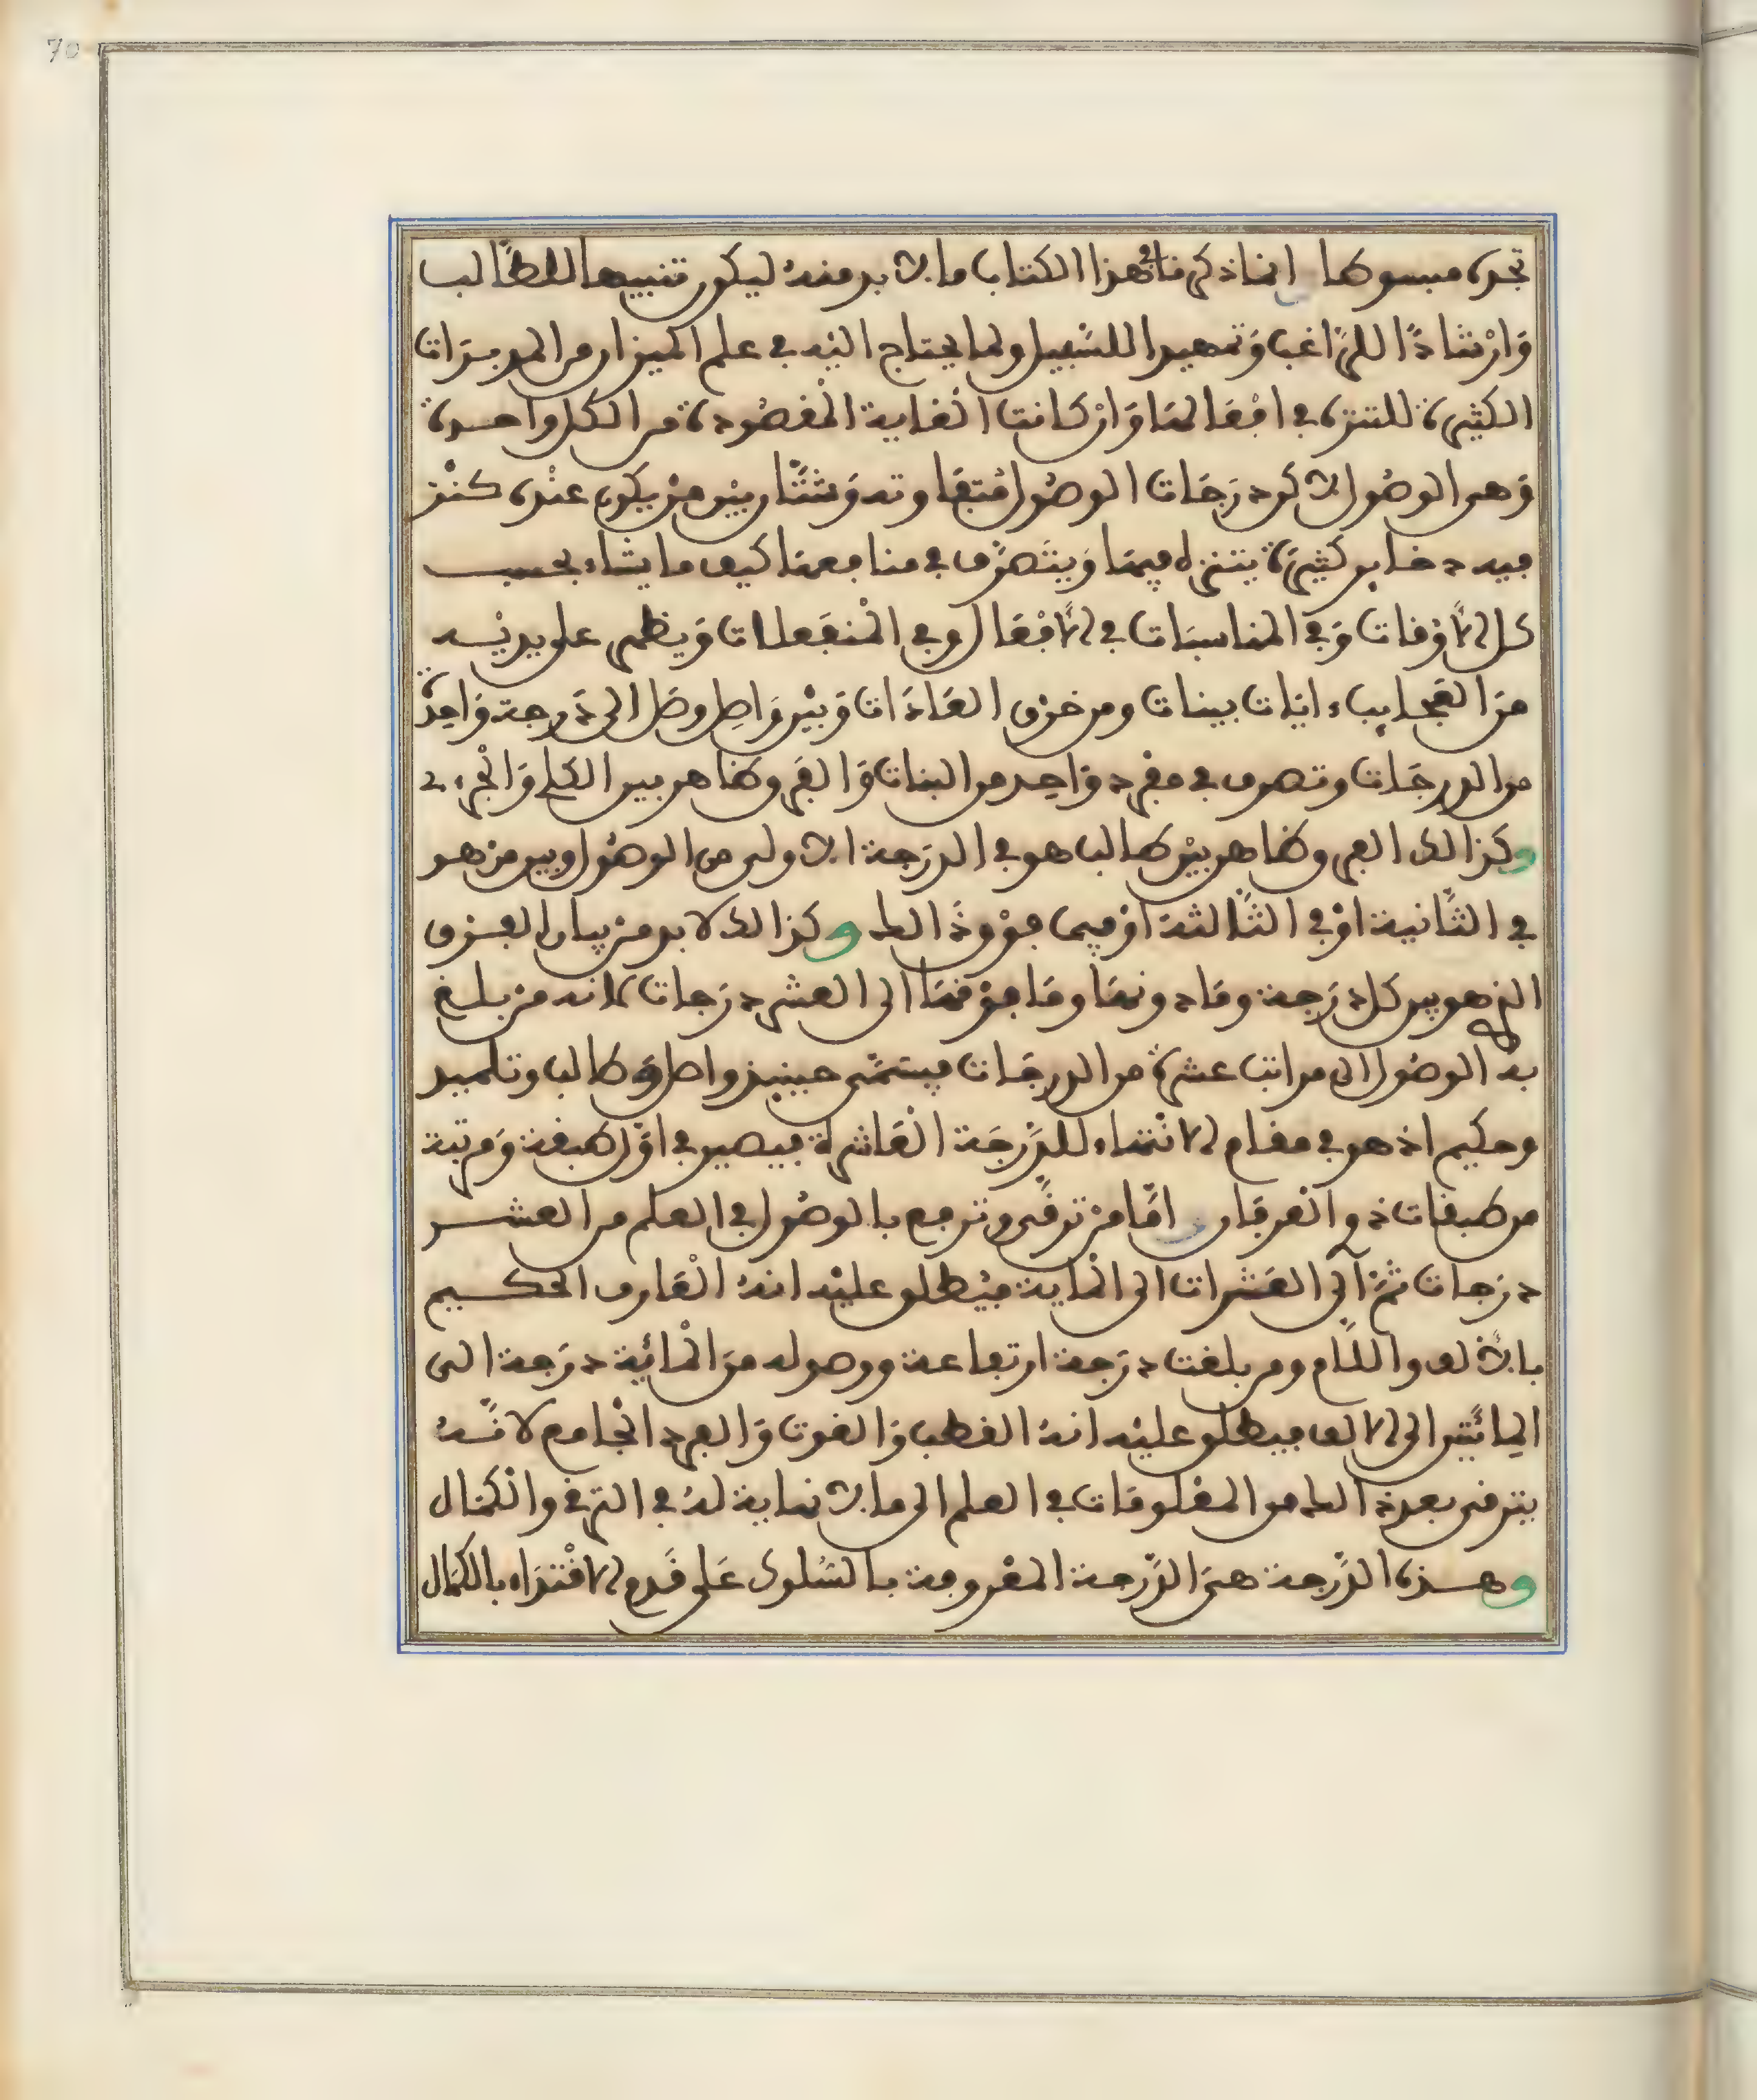 70
تجده مبسوطا انما ذكرنا في هذا الكتاب ما لا بد منه ليكون تنبيها للطالب
وَارْشادًا للرّاغب وَتمهيدا للسّبيل ولما يحتاج اليْه في علم الميزان من المدبرَات
الكثيرة للتنزه في افعَالهَا وَانْ كانت الغاية المْقصُودة من الكل واحدة
وَهي الوصُول لاكن دَرجَات الوصُول مُتفَاوتة وَشتّان بيْن منْ يكون عنْده كنْز
فيه دخاير كثيرة يتنزه فيهَا وَيتَصرّف في منافعهَا كيف ما يشاء بحسب
كل الاوْقات وَفي المناسبَات في الافْعَال وفي المْنفَعلات وَيظهر على يديْه
منَ العَجايب ءايَات بينات ومن خرق العَادَات وَبيْن وَاصل وصَل الى دَرجة وَاحِدَة
من الدرجَات وتصرف في مفرد وَاحِد من البنات وَالفرق ظاهر بين الكلي وَالجْزءي
وكذالك الفرق ظاهر بيْن طالب هو في الدرَجة الاولى من الوصُول وبين منْ هو
في الثّانية اوْ في الثّالثة اوْ فيما فوْق ذَالك وكذالك لا بد منْ بيان الفرق
الذي هو بين كل دَرَجة ومَا دونهَا ومَا فوْقهَا الى العشر درَجات لانه منْ بلغ
به الوصُول الى مراتب عشرة من الدرجَات فيسَمّى حينيذ واصل وَطالب وتلميد
وحكيم اذ هو في مقام الانْتهَاء للدّرَجَة العَاشرة فيصير في اوّل طبقة وَمرتبة
من طبقات ذوي العرفَان امّا منْ ترقّى وترفع بالوصُول في العلم من العشر
درَجات ثمّ الى العَشرات الى المْاية فيُطلق عليْه انهُ العَارف الحكيم
بالالف واللام ومن بلغت درَجة ارتفاعة ووصوله منَ المْائية درَجة الى
المائتيَن الى الالف فيطلق عليْه انهُ القطب وَالغوت وَالفرد الجْامع لانّهُ
يترقى بعد ذالك من المعْلومَات في العلم الى ما لا نهاية لهُ في الترقي والكمَال
وهذه الدّرجة هيَ الدّرجة المعْروفة بالسُلوك عَلى قَدم الاقْتدَاء بالكمَال